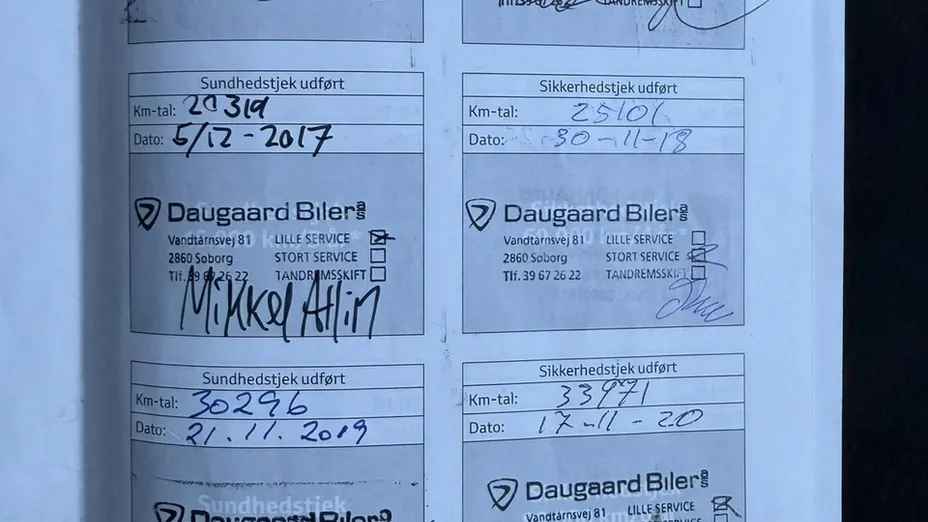 TANDREMSSKIFT
Sundhedstjek udført
Km-tal: 20319
Dato: 5/12-2017
Daugaard Biler a/s
Vandtårnsvej 81 LILLE SERVICE
2860 Søborg STORT SERVICE
Tlf. 39 67 26 22 TANDREMSSKIFT
Mikkel
Sikkerhedstjek udført
Km-tal: 25101
Dato: 30-11-18
Daugaard Biler a/s
Vandtårnsvej 81 LILLE SERVICE
2860 Søborg STORT SERVICE
Tlf. 39 67 26 22 TANDREMSSKIFT
Sundhedstjek udført
Km-tal: 30296
Dato: 21.11.2019
Sundhedstjek
Daugaard Biler
Sikkerhedstjek udført
Km-tal: 33971
Dato: 17-11-20
Daugaard Biler a/s
Vandtårnsvej 81 LILLE SERVICE
SERVICE